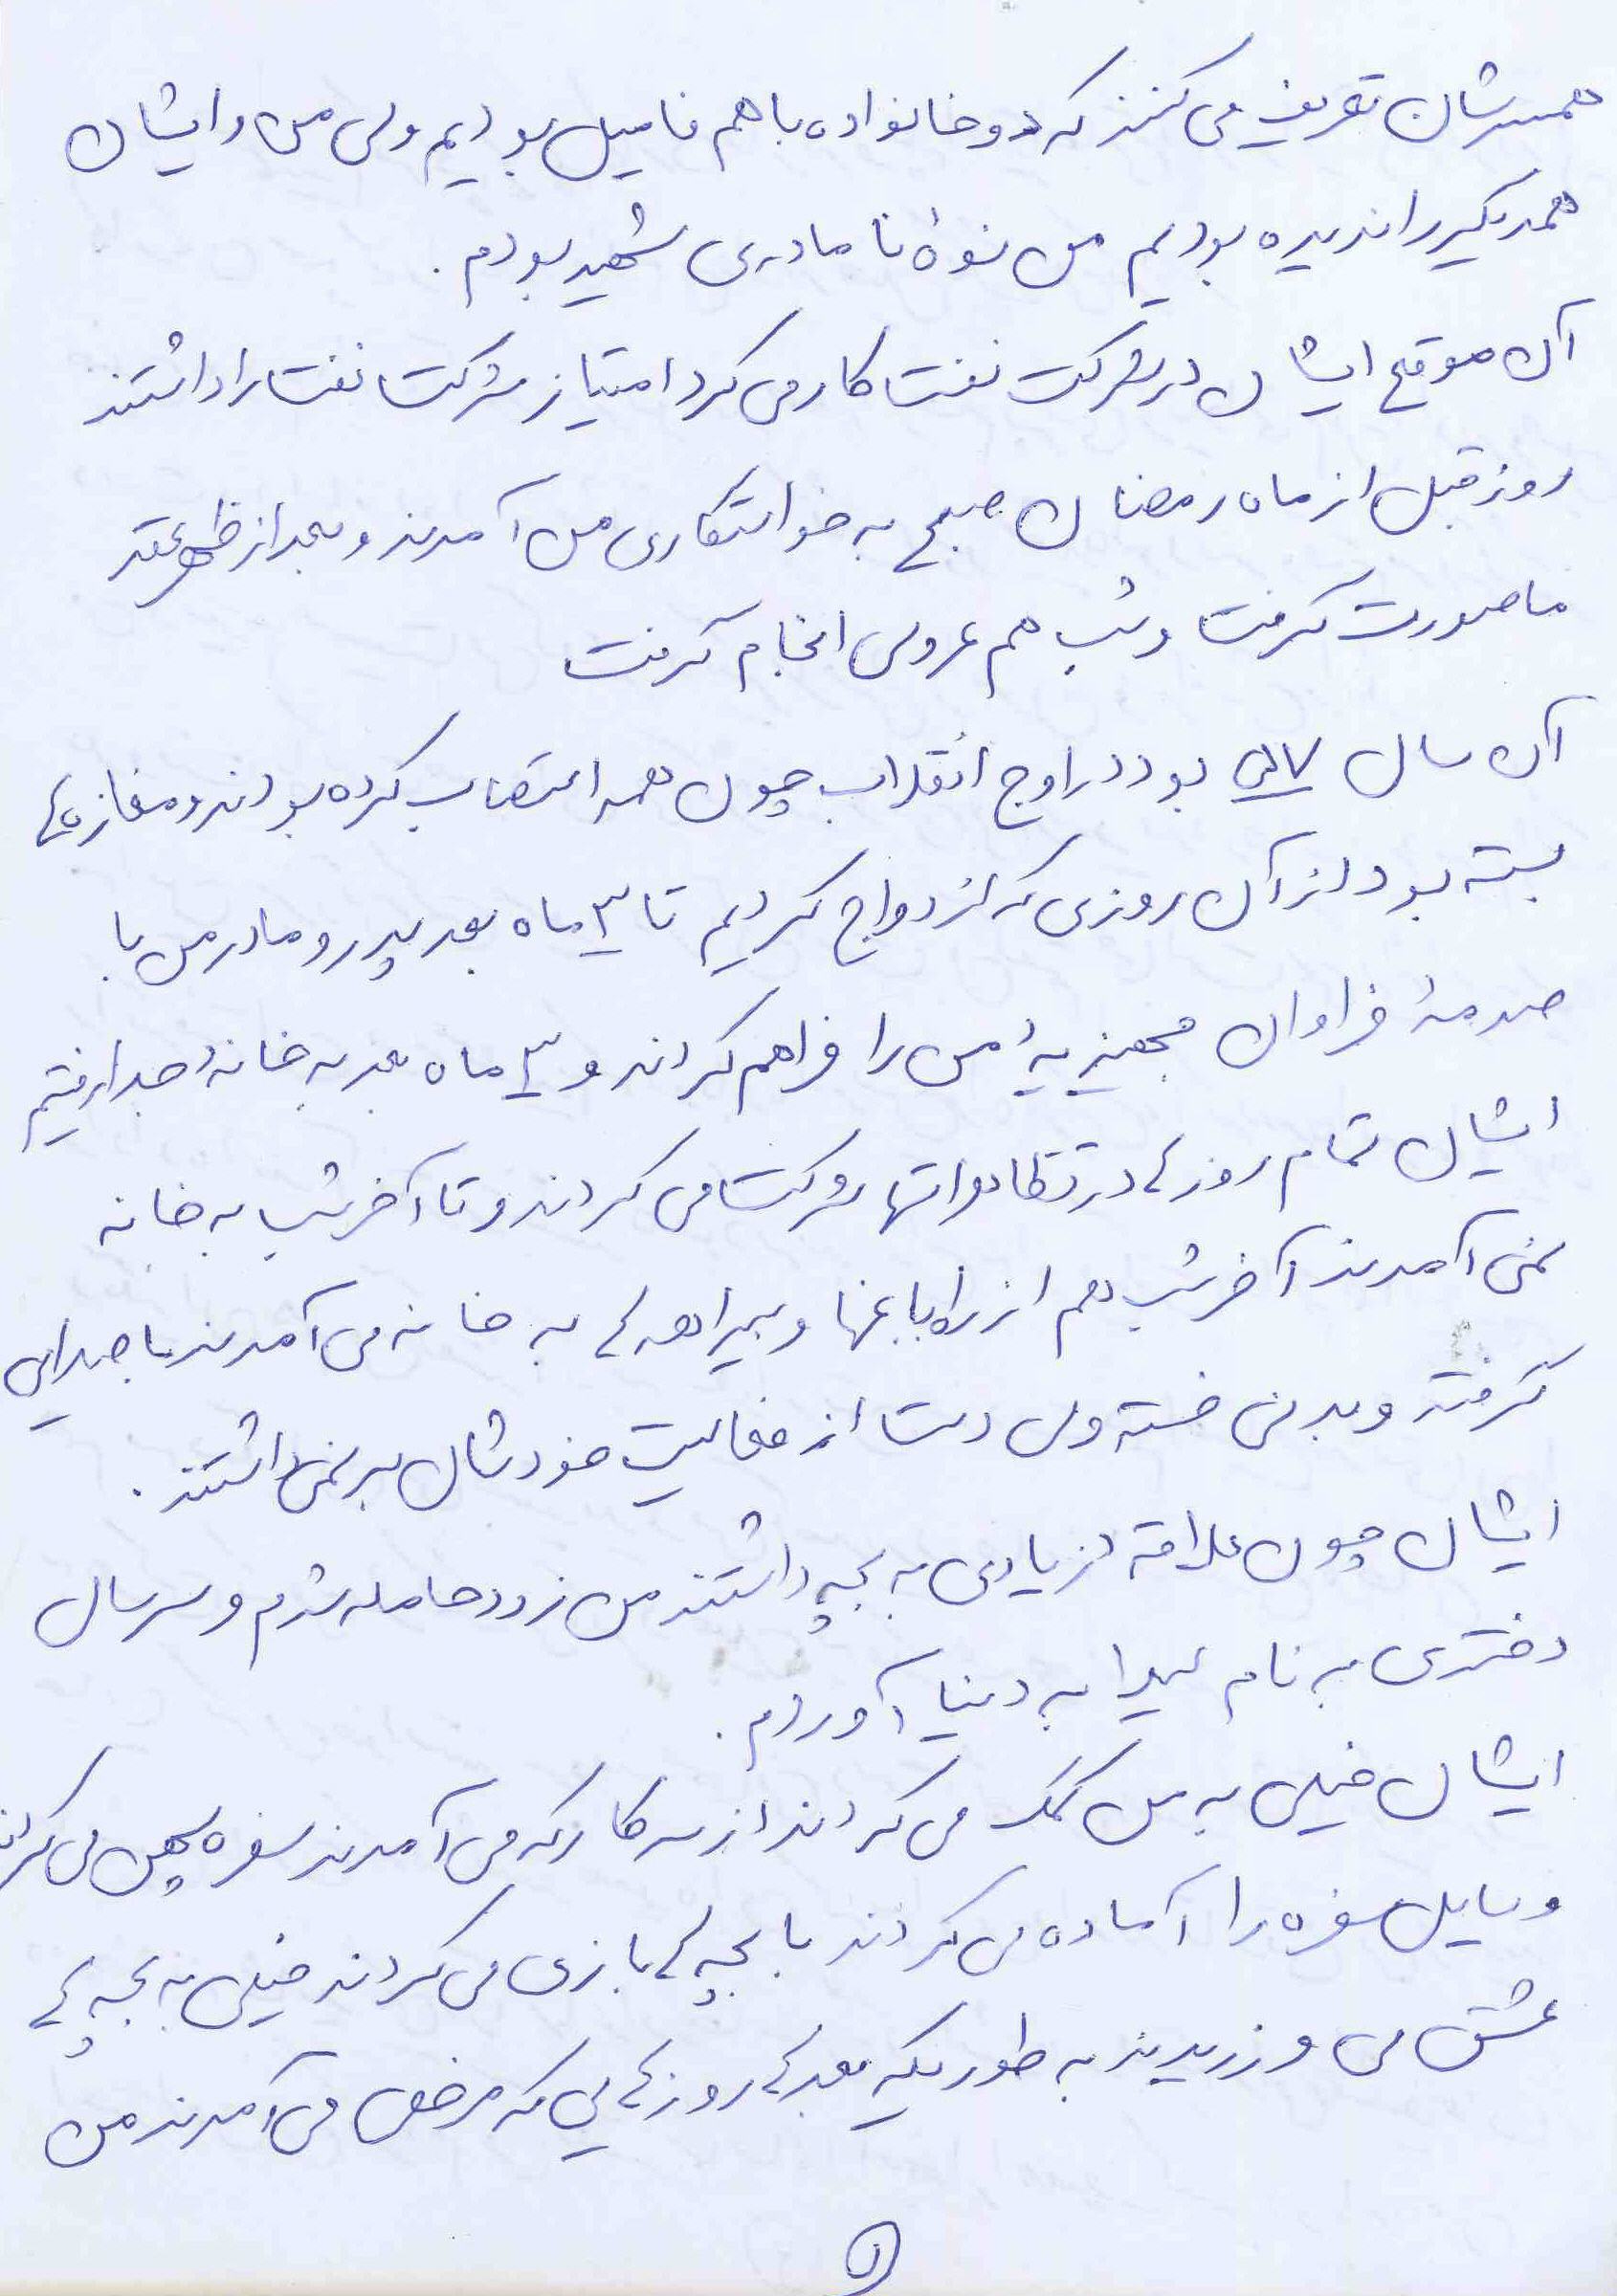 همسرشان تعریف می کنند که دو خانواده با هم فامیل بودیم ولی من و ایشان
همدیگر را ندیده بودیم من نوهٔ نا مادری شهید بودم.
آن موقع ایشان در شرکت نفت کار می کرد امتیاز شرکت نفت را داشتند
روز قبل از ماه رمضان صبح به خواستگاری من آمدند و بعد از ظهر عقد
ما صورت گرفت و شب هم عروسی انجام گرفت
آن سال ۵۷ بود در اوج انقلاب چون همه اعتصاب کرده بودند و مغازه ها
بسته بود از آن روزی که ازدواج کردیم تا ۳ ماه بعد پدر و مادر من با
صدمهٔ فراوان جهیزیهٔ من را فراهم کردند و ۳ ماه بعد به خانهٔ جدا رفتیم
ایشان تمام روز ها در تظاهراتها شرکت می کردند و تا آخر شب به خانه
نمی آمدند آخر شب هم از راه باغها و بیراهه ها به خانه می آمدند با صدایی
گرفته و بدنی خسته ولی دست از فعالیت خودشان بر نمی داشتند.
ایشان چون علاقه زیادی به بچه داشتند من زود حامله شدم و سر سال
دختری به نام لیلا به دنیا آوردم.
ایشان خیلی به من کمک می کردند از سر کار که می آمدند سفره پهن می کردند
وسایل سفره را آماده می کردند با بچه ها بازی می کردند خیلی به بچه ها
عشق می ورزیدند به طوریکه بعد ها روز هایی که مرخصی می آمدند من